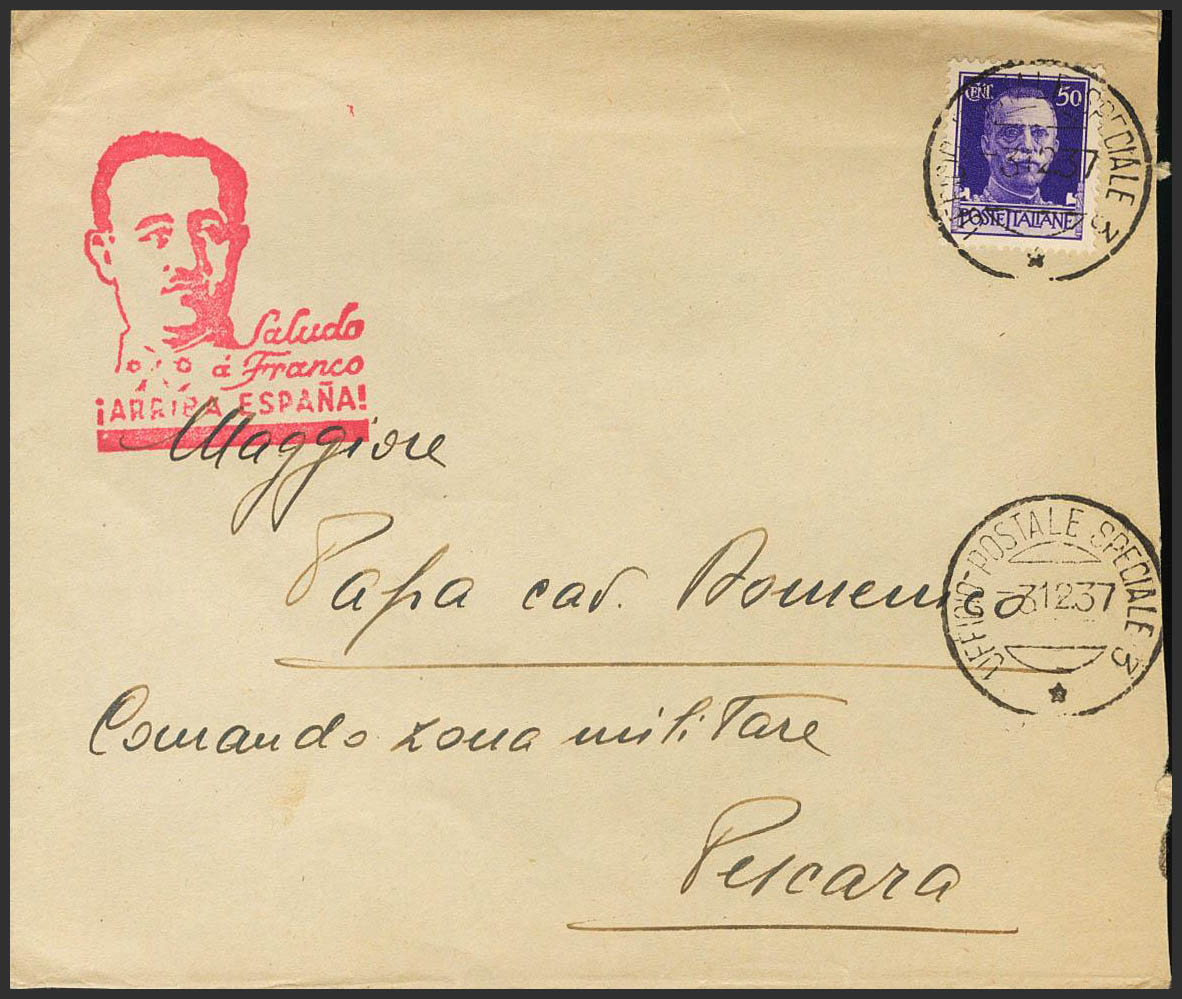 CENT. 50
POSTE ITALIANE
UFFICIO POSTALE SPECIALE 3
-3 12 37
Saludo
á Franco
¡ARRIBA ESPAÑA!
Maggiore
Papa cav. Domenico
UFFICIO POSTALE SPECIALE 3
-3 12 37
Comando zona militare
Pescara